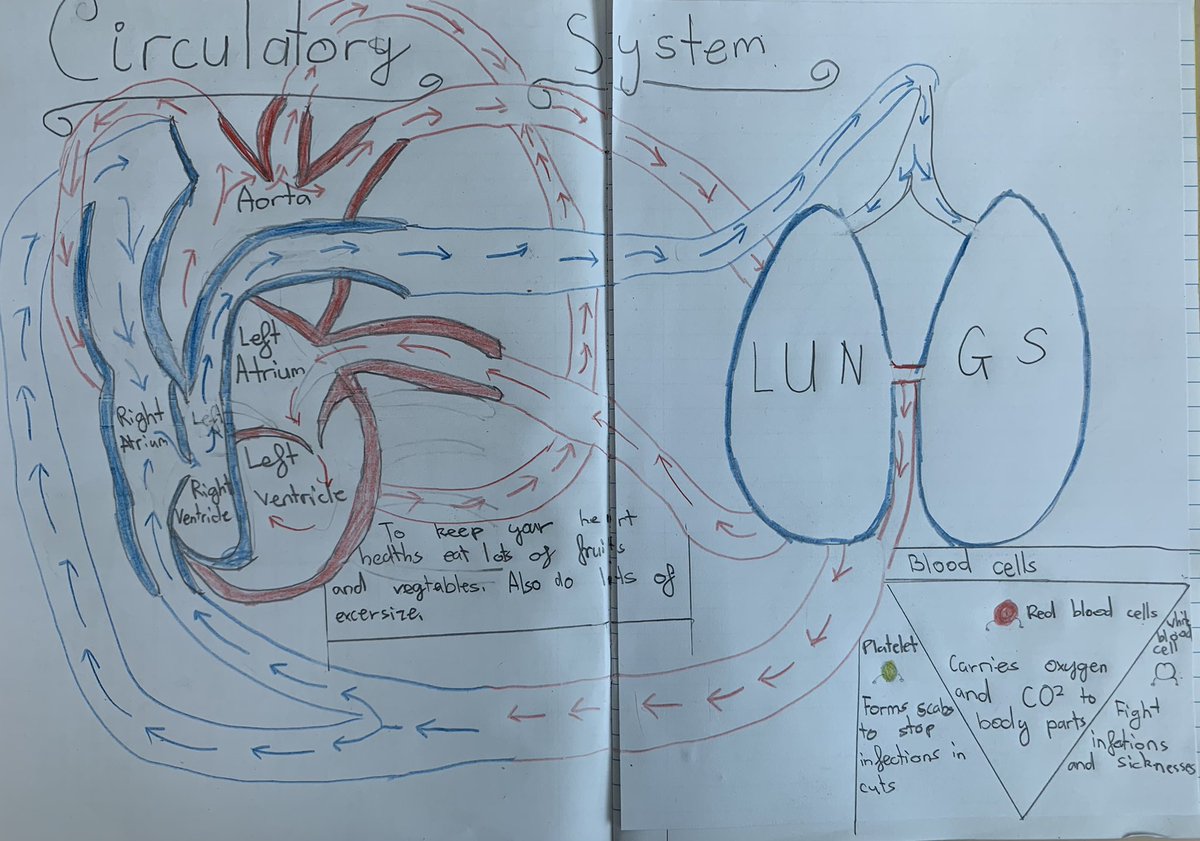 Circulatory System
Aorta
Left
Atrium
Right
Atrium
Left
Left
Ventricle
Right
Ventricle
LUNGS
To keep your heart
healths eat lots of fruits
and vegtables. Also do lots of
excersize.
Blood cells
Red blood cells
Carries oxygen
and CO² to
body parts
Platelet
Forms scabs
to stop
infections in
cuts
white
blood
cell
Fight
infetions
and sicknesses